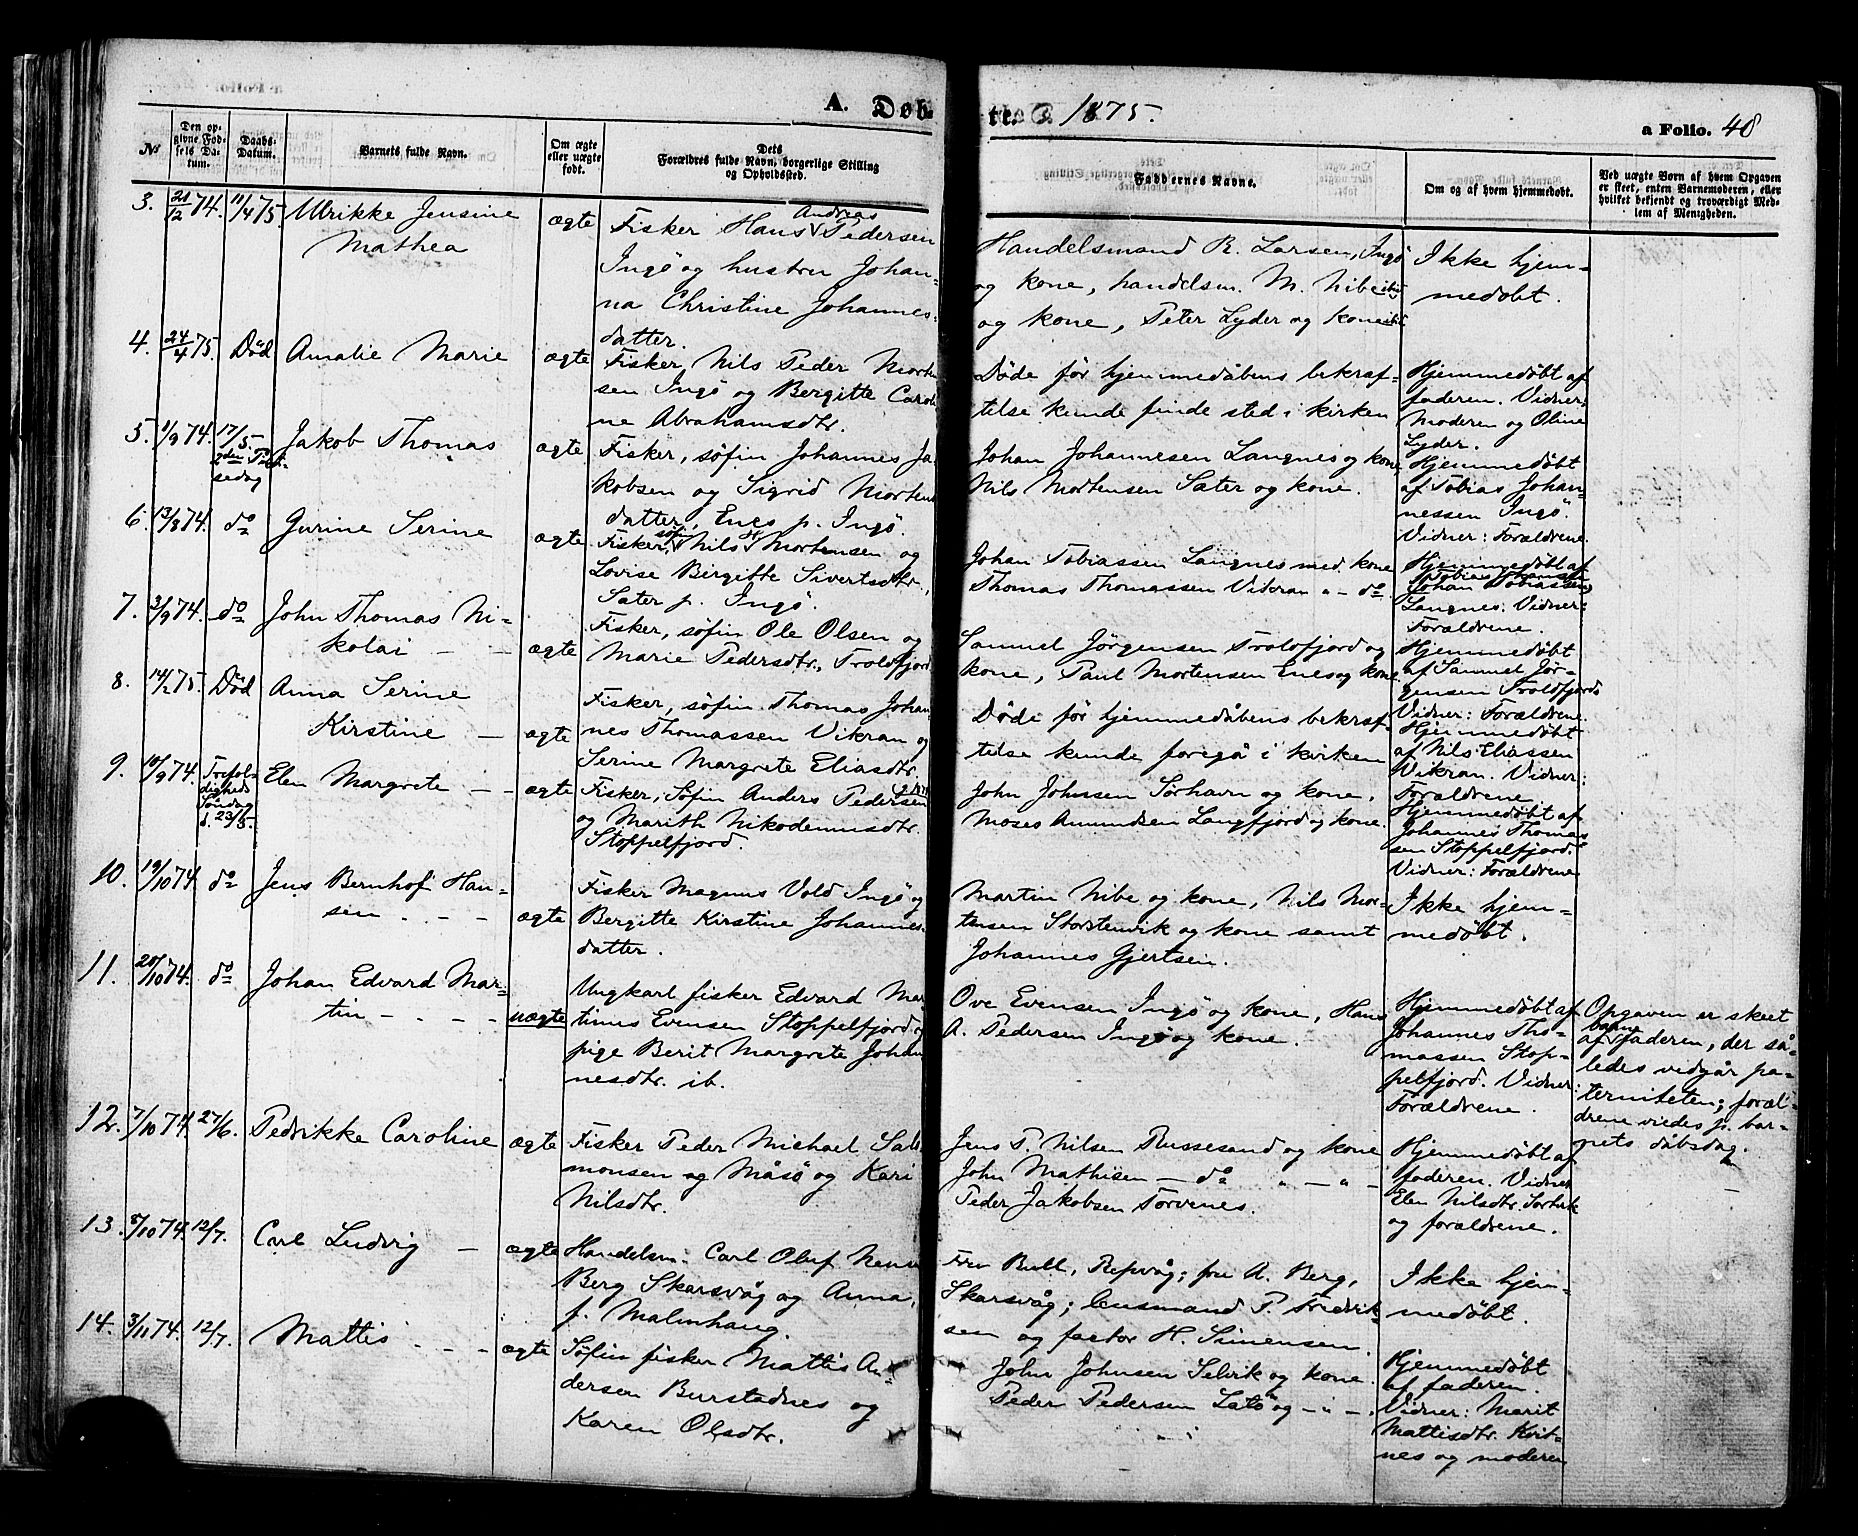 A. Døb-
te. 1875.
a Folio. 48
No
Den op-
givne Fød-
sels Da-
tum.
Daabs-
Datum.
Barnets fulde Navn.
Om ægte
eller uægte
født.
Dets
Forældres fulde Navn, borgerlige Stilling
og Opholdssted.
Faddernes Navne.
Om og af hvem hjemmedøbt.
Ved uægte Børn af hvem Opgaven
er skeet, enten Barnemoderen, eller
hvilket bekjendt og troværdigt Med-
lem af Menigheden.
3. 21/12 74. 11/4 75. Ulrikke Jensine
Mathea
ægte
Andreas
Fisker Hans Pedersen
Ingö og hustru Johan-
na Christine Johannes-
datter.
Handelsmand R. Larsen, Ingö
og kone, handelsm. M. Nibe ibid
og kone, Peter Lyder og kone ibid
Ikke hjem-
medøbt.
4. 24/4 75. Död Amalie Marie
ægte
Fisker, Nils Peder Morten
sen Ingö og Bergitte Caroli
ne Abrahamsdtr.
Döde för hjemmedåbens bekræf-
telse kunde finde sted i kirken
Hjemmedöbt af
faderen. Vidner:
Moderen og Oline
Lyder.
5. 1/9 74. 17/5.
2den Pint-
sedag
Jakob Thomas
ægte
Fisker, söfin Johannes Ja
kobsen og Sigrid Mortens
datter, Enes p. Ingö.
Johan Johannesen Langnes og kone,
Nils Mortensen Sæter og kone.
Hjemmedöbt
af Tobias Johan-
nessen Ingö.
Vidner: Forældrene.
6. 13/8 74. do Gurine Serine
ægte
söfin
Fisker, Nils H. Mortensen og
Lovise Birgitte Sivertsdtr.,
Sæter p. Ingö.
Johan Tobiassen Langnes med kone
Thomas Thomassen Vikran " - do
Hjemmedöbt af
Johan Tobiassen
Langnes. Vidner:
Forældrene.
7. 3/9 74. do John Thomas Ni-
kolai - -
ægte
Fisker, söfin Ole Olsen og
Marie Pedersdtr. Troldfjord
Samuel Jörgensen Troldfjord og
kone, Paul Mortensen Enes og kone
Hjemmedöbt
af Samuel Jör-
gensen Troldfjord
Vidner: Forældrene.
8. 14/2 75. Död Anna Serine
Kirstine -
ægte
Fisker, söfin Thomas Johan
nes Thomassen Vikran og
Serine Margrete Eliasdtr.
Döde för hjemmedåbens bekræf-
telse kunde foregå i kirken
Hjemmedöbt
af Nils Eliassen
Vikran. Vidner:
Forældrene
9. 10/9 74. Trefol-
digheds
Söndag
d. 23/5.
Elen Margrete - -
ægte
Fisker, Söfin Anders Pedersen
og Marith Nikodemusdtr.
Stoppelfjord.
John Johnsen Sörhavn og kone.
Moses Amundsen Langfjord og kone.
Hjemmedöbt af
Johannes Thomas
sen Stoppelfjord.
Vidner: Forældrene
10. 19/10 74. do Jens Bernhof Han-
sen - - -
ægte
Fisker Magnus Vold Ingö og
Bergitte Kirstine Johannes-
datter.
Martin Nibe og kone, Nils Mor-
tensen Storstenvik og kone samt
Johannes Gjertsen.
Ikke hjem-
medöbt.
11. 20/10 74. do Johan Edvard Mar-
tin - - - -
uægte
Ungkarl fisker Edvard Mar
tinus Evensen Stoppelfjord og
pige Berit Margrete Johan
nesdtr. ib.
Ove Evensen Ingö og kone, Hans
A. Pedersen Ingö og kone.
Hjemmedöbt af
Johannes Tho-
massen Stop-
pelfjord. Vidner:
Forældrene.
Opgaven er skeet
barne
af faderen, der så-
ledes vidgår pa-
terniteten; foræl-
drene viedes p. bar-
nets dåbsdag.
12. 7/10 74. 27/6. Pedrikke Caroline
ægte
Fisker Peder Michael Salo
monsen og Måsö og Kari
Nilsdtr.
Jens P. Nilsen Russesund og kone
John Mathisen - do " - " -
Peder Jakobsen Torvenes.
Hjemmedöbt af
faderen. Vidner
Elen Nilsdtr. Sortvik
og forældrene.
13. 8/10 74. 12/7. Carl Ludvig -
ægte
Handelsm. Carl Oluf
Berg Skarsvåg og Anna,
f. Malmhaug.
Fru Bull, Repvåg; fru A. Berg,
Skarsvåg; lensmand P. Fredrik-
sen og factor H. Simensen.
Ikke hjem-
medöbt.
14. 3/11 74. 12/7. Mattis - - -
ægte
Söfin fisker Mattis An-
dersen Burstadnes og
Karen Olsdtr.
John Johnsen Selvik og kone.
Peder Pedersen Latö og - " -.
Hjemmedöbt
af faderen.
Vidner: Marit
Mattisdtr. Kvit-
nes og moderen